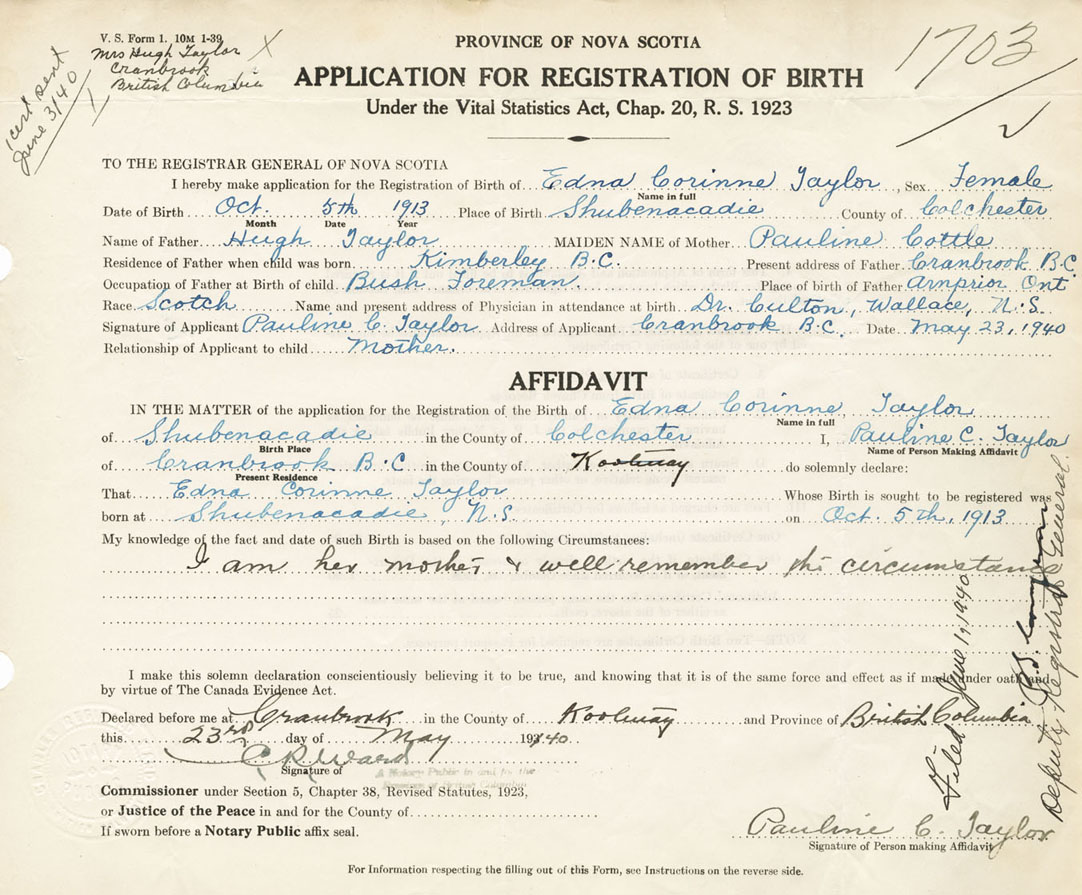 V. S. Form 1. 10M 1-39
Mrs Hugh Taylor X
Cranbrook
British Columbia
cert sent
June 3/40
1703
PROVINCE OF NOVA SCOTIA
APPLICATION FOR REGISTRATION OF BIRTH
Under the Vital Statistics Act, Chap. 20, R. S. 1923
TO THE REGISTRAR GENERAL OF NOVA SCOTIA
I hereby make application for the Registration of Birth of Edna Corinne Taylor, Sex Female
Name in full
Date of Birth Oct. 5th 1913 Place of Birth Shubenacadie County of Colchester
Month Date Year
Name of Father Hugh Taylor MAIDEN NAME of Mother Pauline Cottle
Residence of Father when child was born Kimberley B.C. Present address of Father Cranbrook B.C
Occupation of Father at Birth of child Bush Foreman. Place of birth of Father Arnprior Ont
Race Scotch Name and present address of Physician in attendance at birth Dr. Culton, Wallace, N.S.
Signature of Applicant Pauline C. Taylor Address of Applicant Cranbrook B.C. Date May 23, 1940
Relationship of Applicant to child Mother.
AFFIDAVIT
IN THE MATTER of the application for the Registration of the Birth of Edna Corinne Taylor
Name in full
of Shubenacadie in the County of Colchester I, Pauline C. Taylor
Birth Place Name of Person Making Affidavit
of Cranbrook B.C in the County of Kootenay do solemnly declare:
Present Residence
That Edna Corinne Taylor Whose Birth is sought to be registered was
born at Shubenacadie, N.S. on Oct. 5th, 1913
My knowledge of the fact and date of such Birth is based on the following Circumstances:
I am her mother & well remember the circumstance
I make this solemn declaration conscientiously believing it to be true, and knowing that it is of the same force and effect as if made under oath and
by virtue of The Canada Evidence Act.
Declared before me at Cranbrook in the County of Kootenay and Province of British Columbia
this 23rd day of May 1940
C R Ward
Signature of
A Notary Public in and for the
Province of British Columbia
Commissioner under Section 5, Chapter 38, Revised Statutes, 1923,
or Justice of the Peace in and for the County of
If sworn before a Notary Public affix seal.
Pauline C. Taylor
Signature of Person making Affidavit
For Information respecting the filling out of this Form, see Instructions on the reverse side.
Filed June 1, 1940
Deputy Registrar General